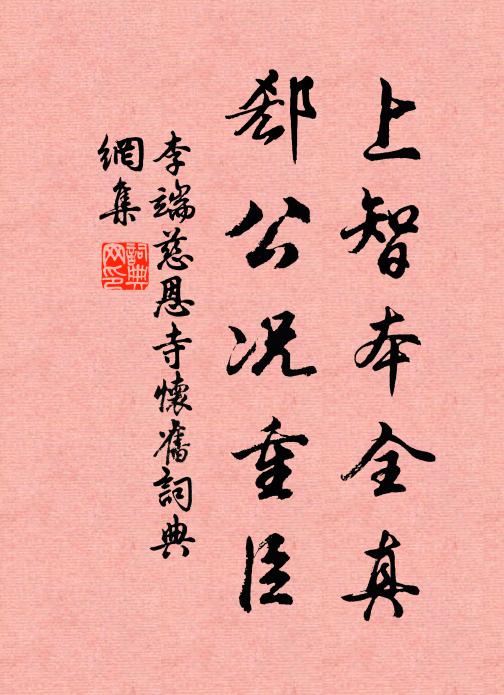 上智本全真
郄公況重臣
李端慈恩寺懷舊詞典
網集
詞典
网印